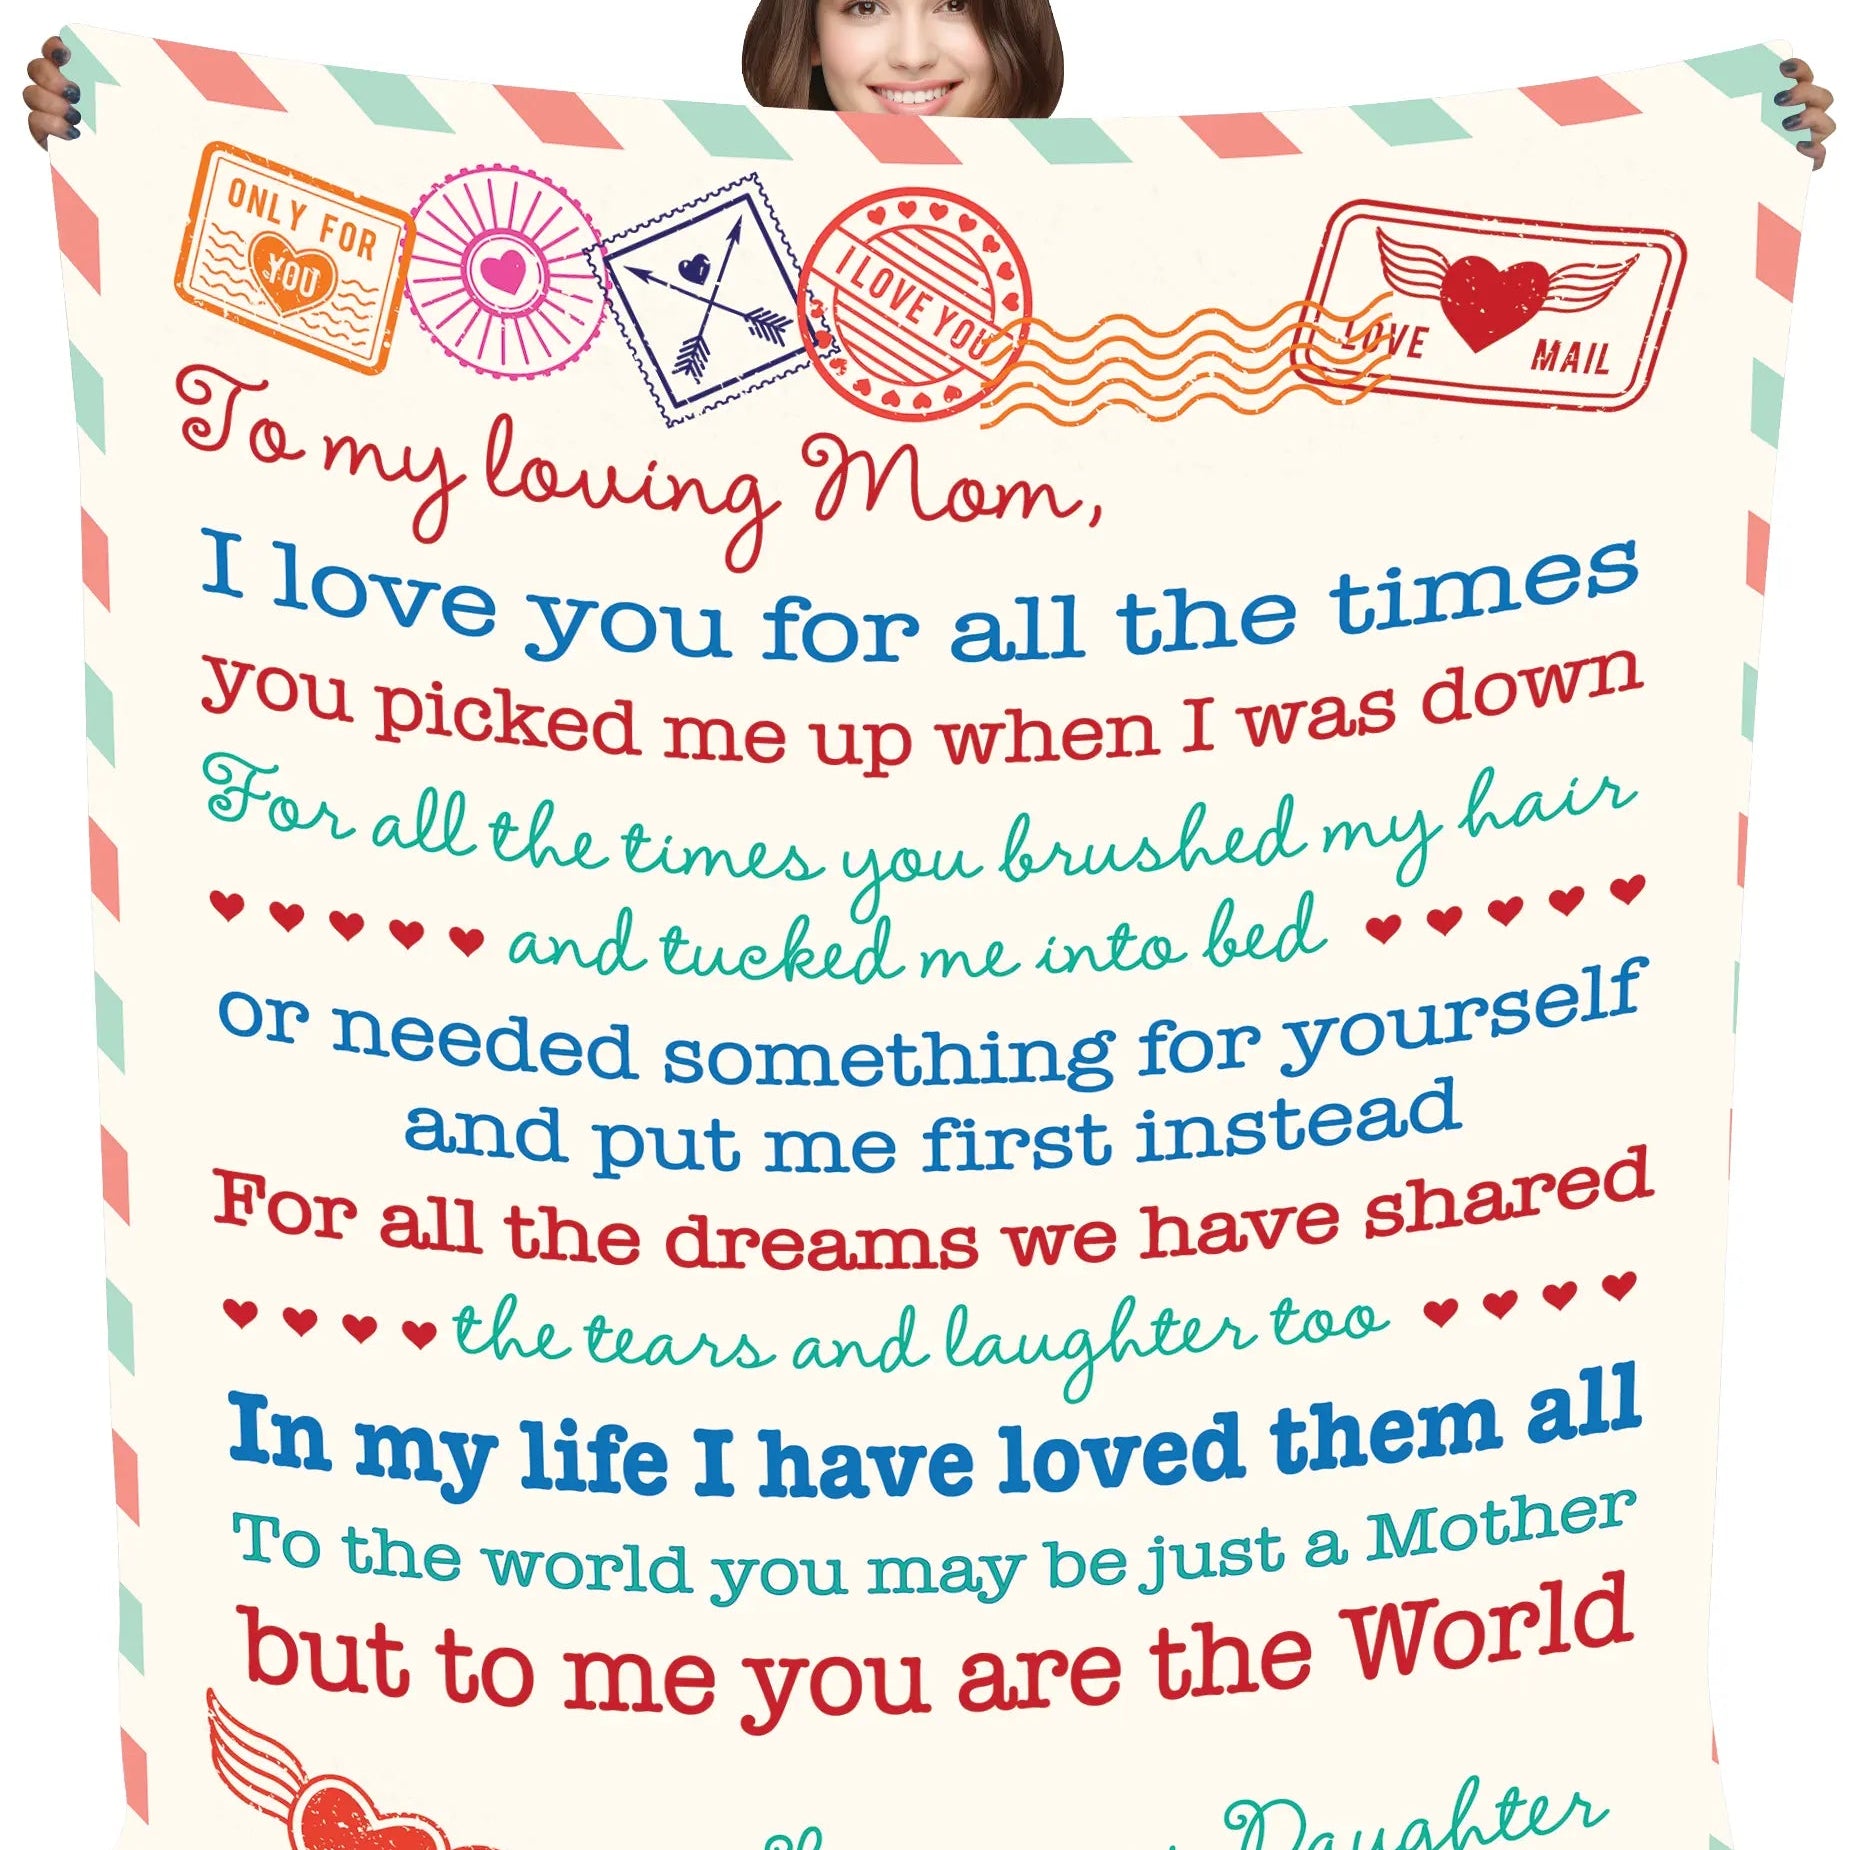 ONLY FOR
YOU
I LOVE YOU
LOVE MAIL
To my loving Mom,
I love you for all the times
you picked me up when I was down
For all the times you brushed my hair
and tucked me into bed
or needed something for yourself
and put me first instead
For all the dreams we have shared
the tears and laughter too
In my life I have loved them all
To the world you may be just a Mother
but to me you are the World
Daughter